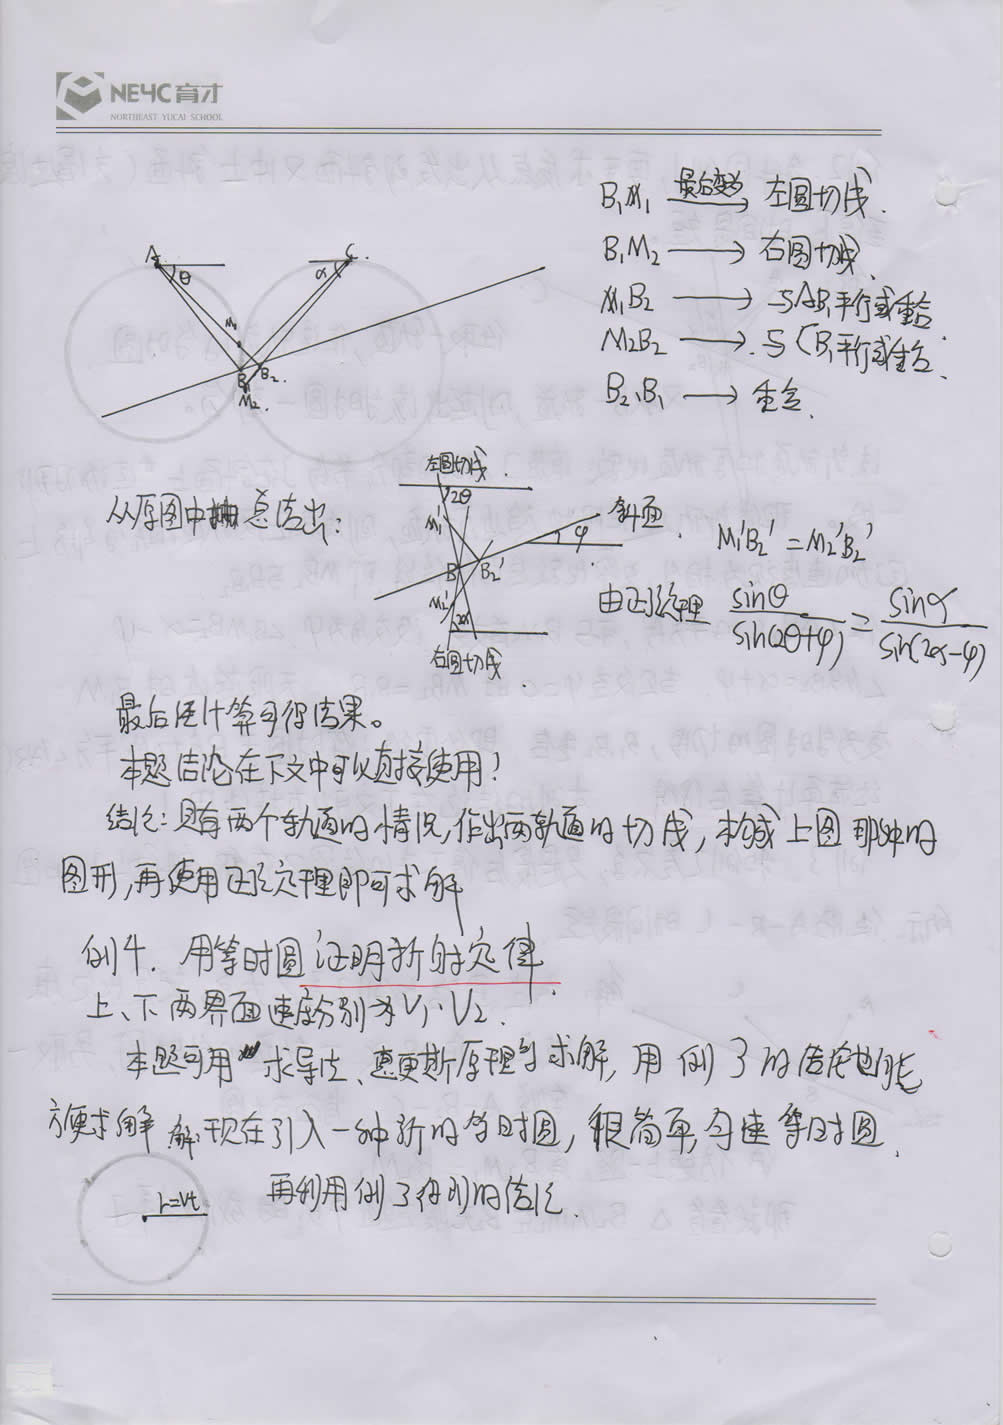 NEYC育才
NORTHEAST YUCAI SCHOOL
B₁M₁ 最后变为→ 左圆切线.
B₁M₂ → 右圆切线.
M₁B₂ → 与AB₁平行或重合.
M₂B₂ → 与CB₁平行或重合.
B₂、B₁ → 重合.
A θ α C
M₁
B₁ B₂
M₂
从原图中抽点结出:
左圆切线
2θ
M₁'
斜面
φ
B₁ B₂'
M₂'
2α
右圆切线
M₁'B₂' = M₂'B₂'
由正弦定理 sinθ/sin(2θ+φ) = sinα/sin(2α-φ)
最后经计算可得结果。
本题结论在下文中可以直接使用!
结论:只有两个轨道的情况,作出两轨道的切线,构成上图那种的
图形,再使用正弦定理即可求解
例4. 用等时圆证明折射定律
上、下两界面速度分别为V₁、V₂.
本题可用求导法、惠更斯原理等求解,用例3的结论也能
方便求解 解:现在引入一种新的等时圆,很简单,匀速等时圆.
r=vt
再利用例3得到的结论.